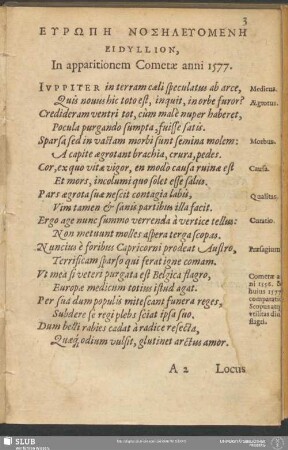 3
ΕΥΡΩΠΗ ΝΟΣΗΛΕΥΟΜΕΝΗ
EIDYLLION,
In apparitionem Cometæ anni 1577.
IVPPITER in terram cæli speculatus ab arce, Medicus.
Quis nouus hic toto est, inquit, in orbe furor? Ægrotus.
Credideram ventri tot, cùm malè nuper haberet,
Pocula purgando sumpta, fuisse satis.
Sparsa sed in vastam morbi sunt semina molem: Morbus.
A capite ægrotant brachia, crura, pedes.
Cor, ex quo vitæ vigor, en modo causa ruinæ est Causa.
Et mors, incolumi quo soles esse salus.
Pars ægrota suæ nescit contagia labis, Qualitas.
Vim tamen & sanis partibus illa facit.
Ergo age nunc summo verrenda à vertice tellus: Curatio.
Non metuunt molles aspera terga scopas.
Nuncius è foribus Capricorni prodeat Austro, Præsagium
Terrificam sparso qui ferat igne comam.
Vt mea si veteri purgata est Belgica flagro, Cometæ a
Europæ medicum totius istud agat. ni 1558.
Per sua dum populis mitescant funera reges, huius 1577
Subdere se regi plebs sciat ipsa suo. comparatio
Dum belli rabies cadat à radice resecta, vtilitas
Quæq́; odium vulsit, glutinet arctus amor. flagri.
A 2 Locus
SLUB